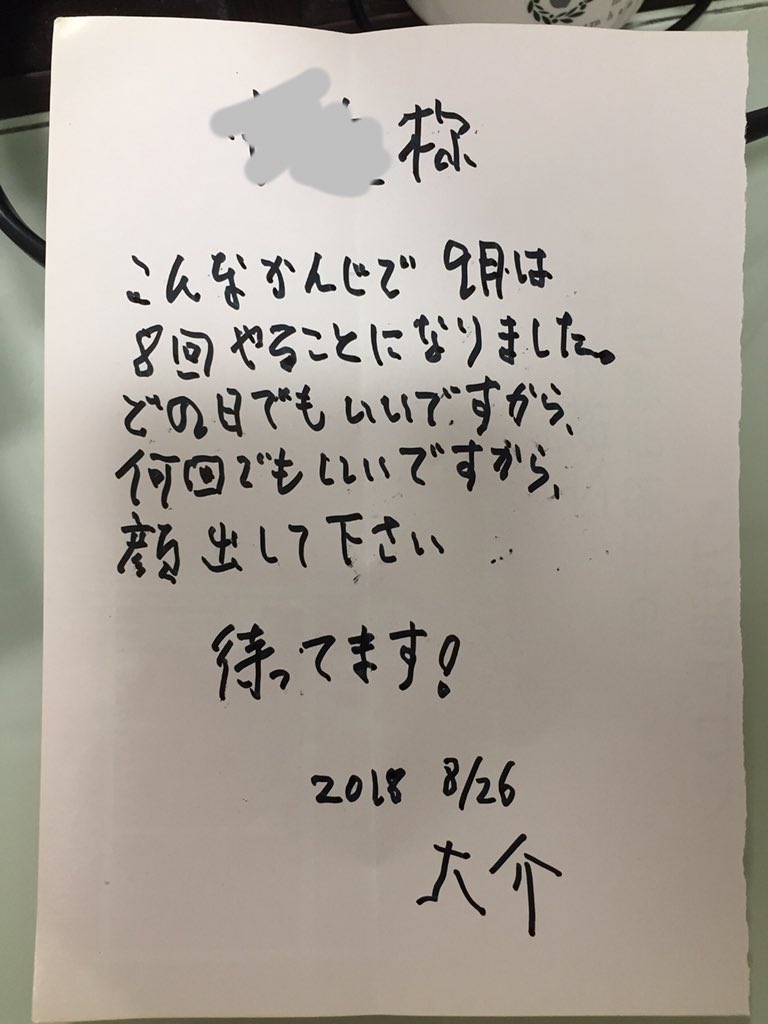 様
こんなかんじで 9月は
8回やることになりました。
どの日でもいいですから、
何回でもいいですから、
顔出して下さい
待ってます!
2018 8/26
大介